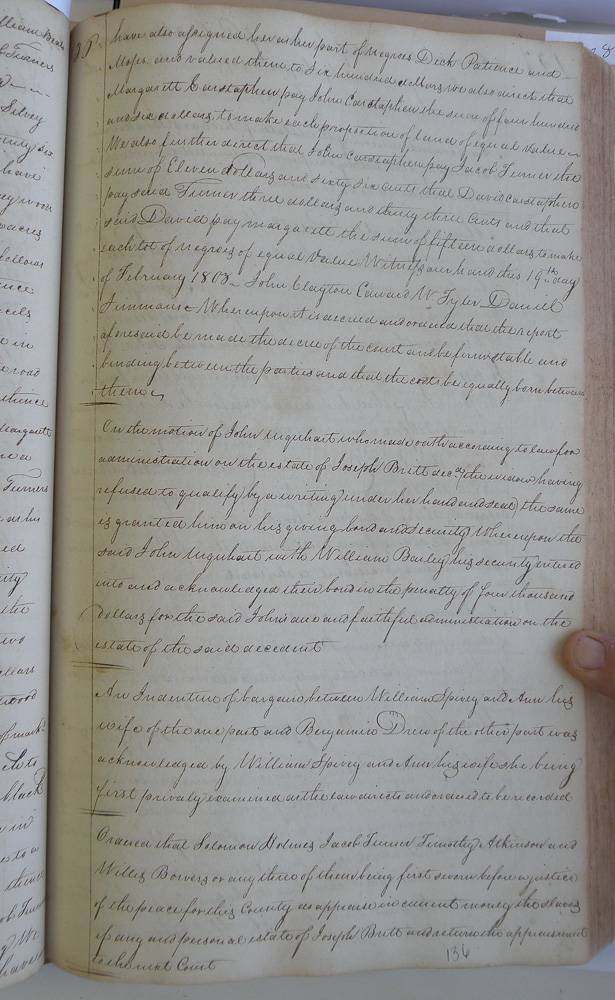 have also assigned her as her part of negroes Dick Patience and
Moses and valued them to six hundred dollars we also direct that
Margarett Carstaphen pay John Carstaphen the sum of four hundred
and six dollars to make each proportion of land of equal value
We also further direct that John Carstaphen pay Jacob Turner the
sum of Eleven dollars and sixty six cents that David Carstaphen
pay said Turner three dollars and thirty three Cents and that
said David pay Margarett the sum of fifteen dollars to make
each lot of negroes of equal value Witness our hand this 19th day
of February 1803 John Clayton Edward W Tyler Daniel
Simmons Whereupon it is decreed and ordered that the report
aforesaid be made the decree of the court and be firm stable and
binding between the parties and that the costs be equally born between
them
On the motion of John Urquhart who made oath according to law for
administration on the estate of Joseph Britt decd (the widow having
refused to qualify by a writing under her hand and seal) the same
is granted him on his giving bond and security Whereupon the
said John Urquhart with William Bailey his security entered
into and acknowledged their bond in the penalty of four thousand
dollars for the said John's due and faithful administration on the
estate of the said decedent
An Indenture of bargain between William Spivey and Ann his
wife of the one part and Benjamin Drew of the other part was
acknowledged by William Spivey and Ann his wife she being
first privily examined as the law directs and ordered to be recorded
Ordered that Solomon Holmes Jacob Turner Timothy Atkinson and
Willis Bowers or any three of them being first sworn before a justice
of the peace for this County do appraise in current money the slaves
if any and personal estate of Joseph Britt and return the appraisement
to the next Court
136